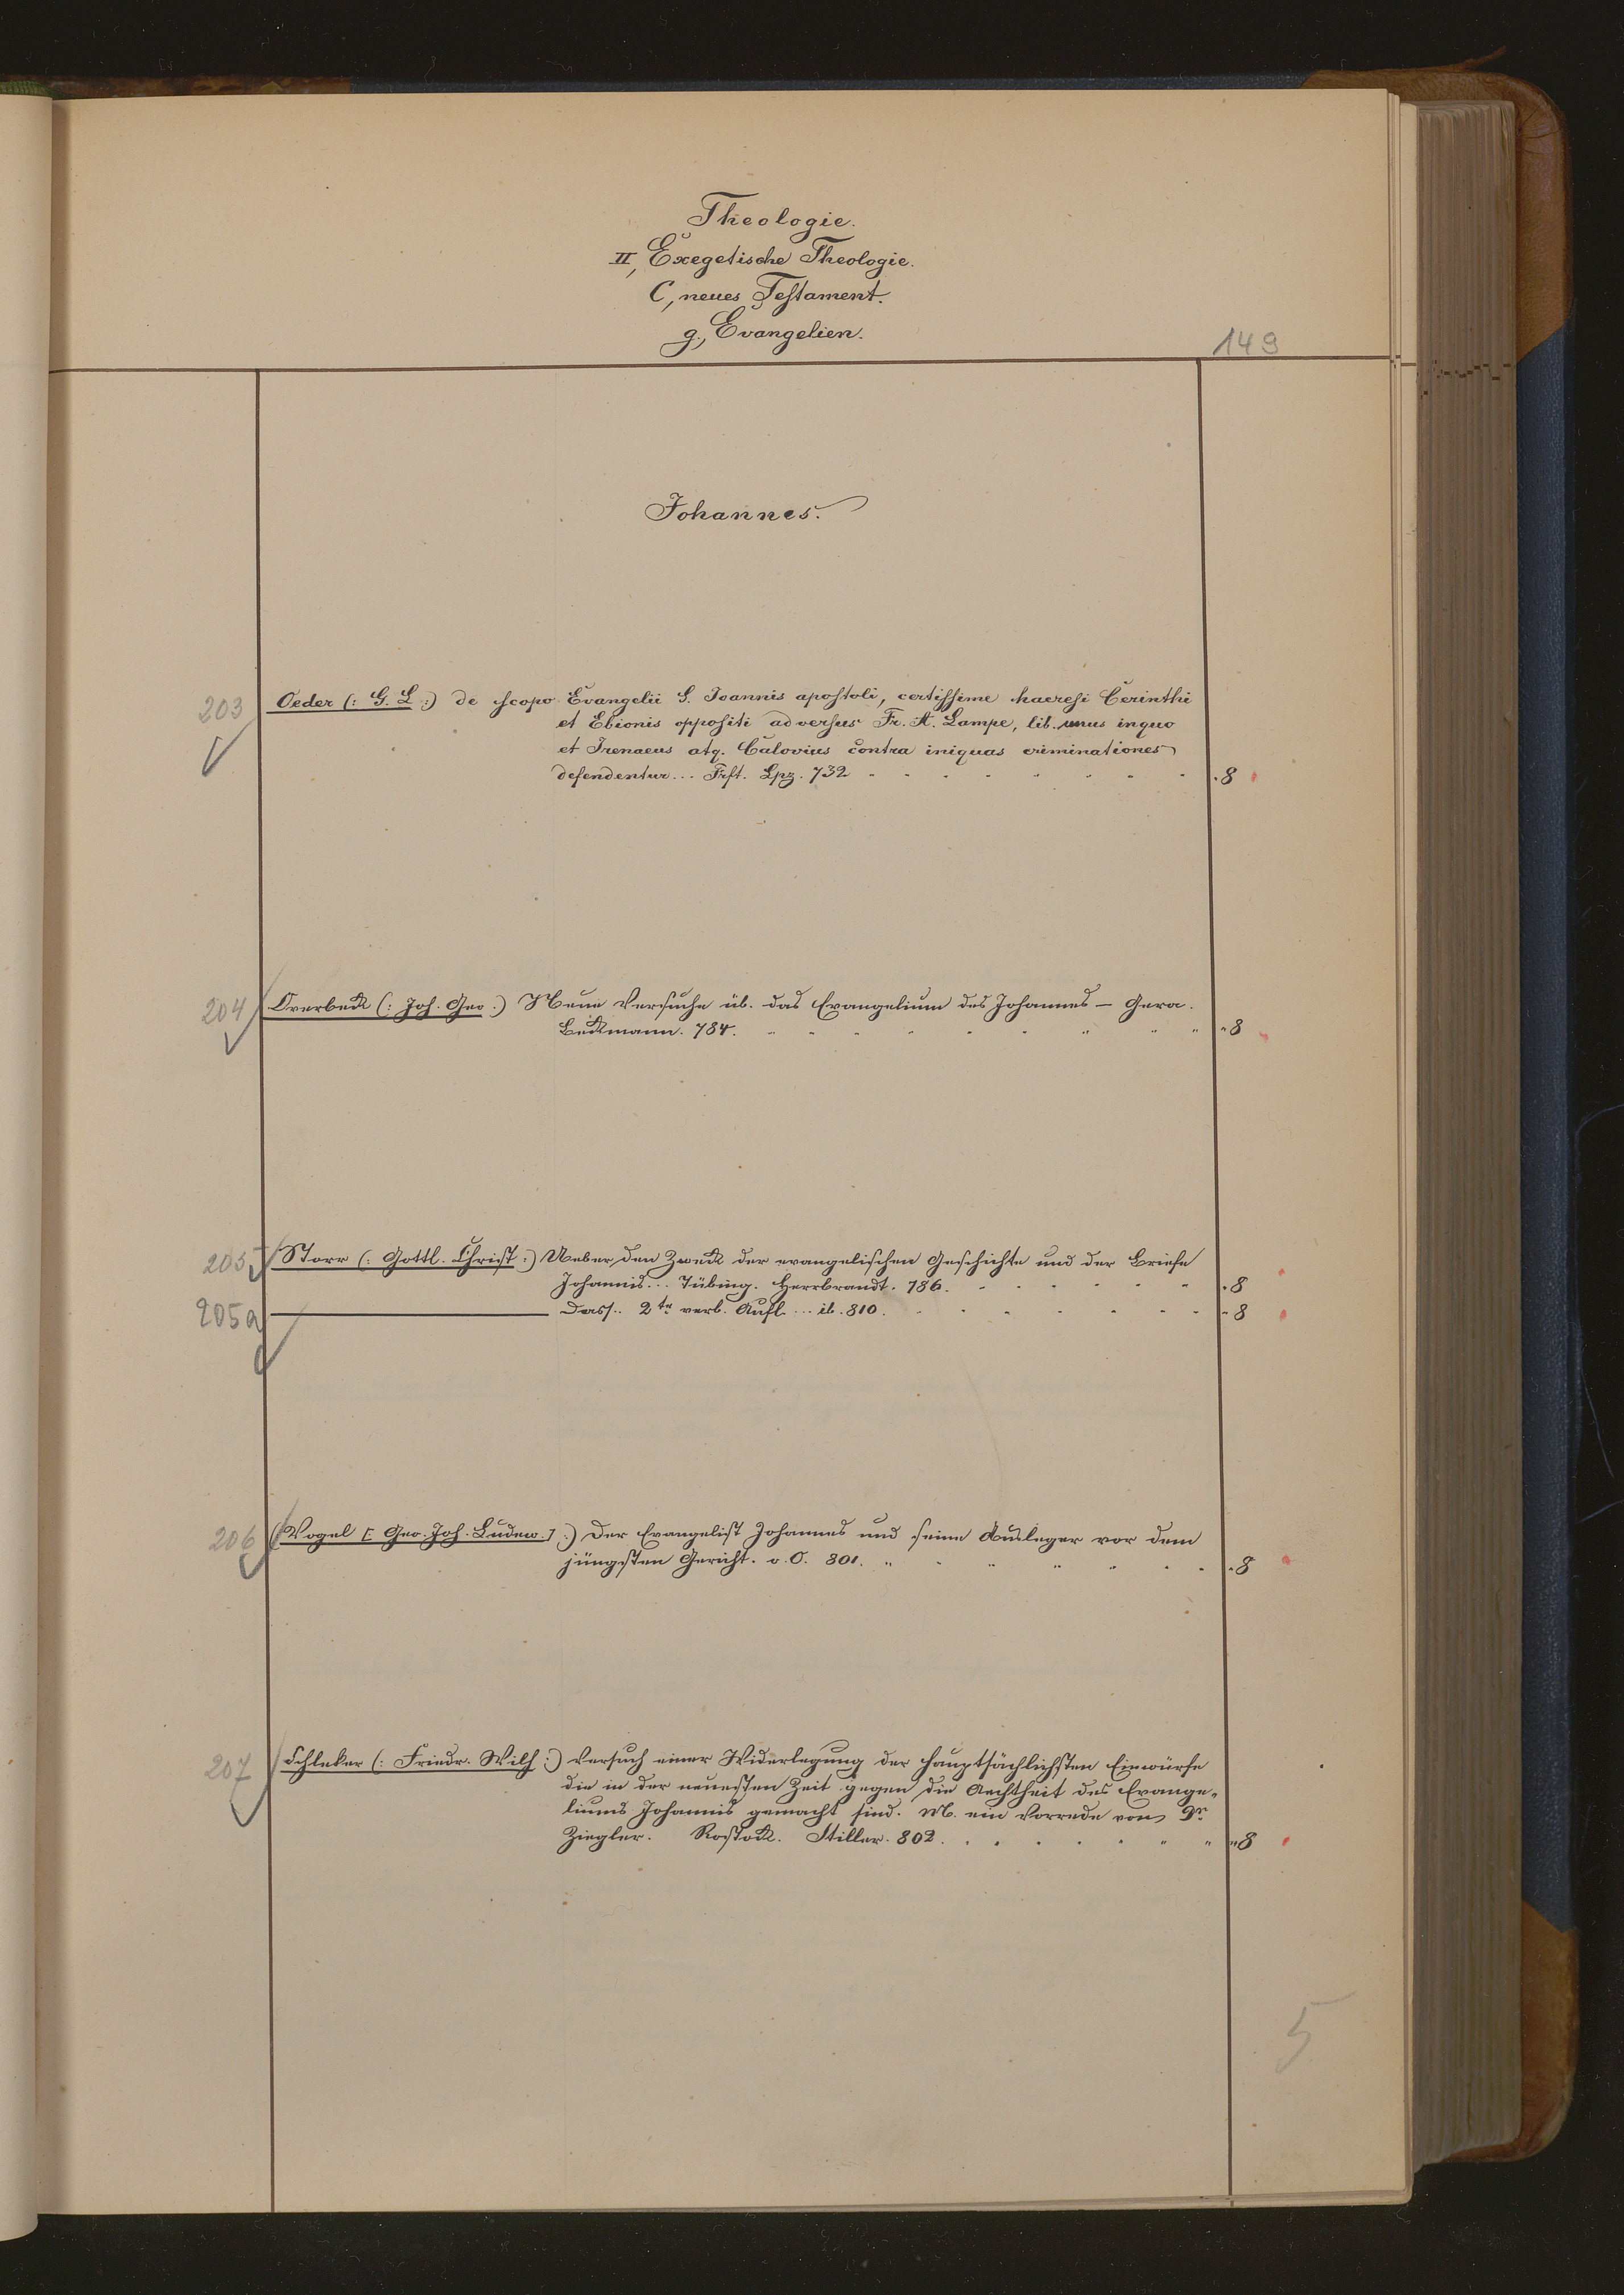 Theologie.
II, Exegetische Theologie.
C, neues Testament.
g., Evangelien.
149
Johannes.
203 Oeder (: G. L :) de scopo Evangelii S. Joannis apostoli, certissime haeresi Cerinthi
et Ebionis oppositi adversus Fr. A. Lampe, lib. unus in quo
et Irenaeus atq. Calovius contra iniquas criminationes
defendentur... Frft. Lpz. 732 8
204 Overbeck (: Joh. Geo :) Neue Versuche üb. das Evangelium des Johannes – Gera.
Beckmann. 784. 8
205 Storr (: Gottl. Christ :) Ueber den Zweck der evangelischen Geschichte und der Briefe
Johannis... Tübing. Heerbrandt. 786. 8
205a ——— Dass.. 2te verb. Aufl... ib. 810. 8
206 (Vogel [: Geo. Joh. Ludew.] :) Der Evangelist Johannes und seine Ausleger vor dem
jüngsten Gericht. o. O. 801. 8
207 Schleker (: Friedr. Wilh :) Versuch einer Widerlegung der hauptsächlichsten Einwürfe
die in der neuesten Zeit gegen die Aechtheit des Evange-
liums Johannis gemacht sind. M. ein Vorrede von Dr
Ziegler. Rostock. Stiller. 802. 8
5